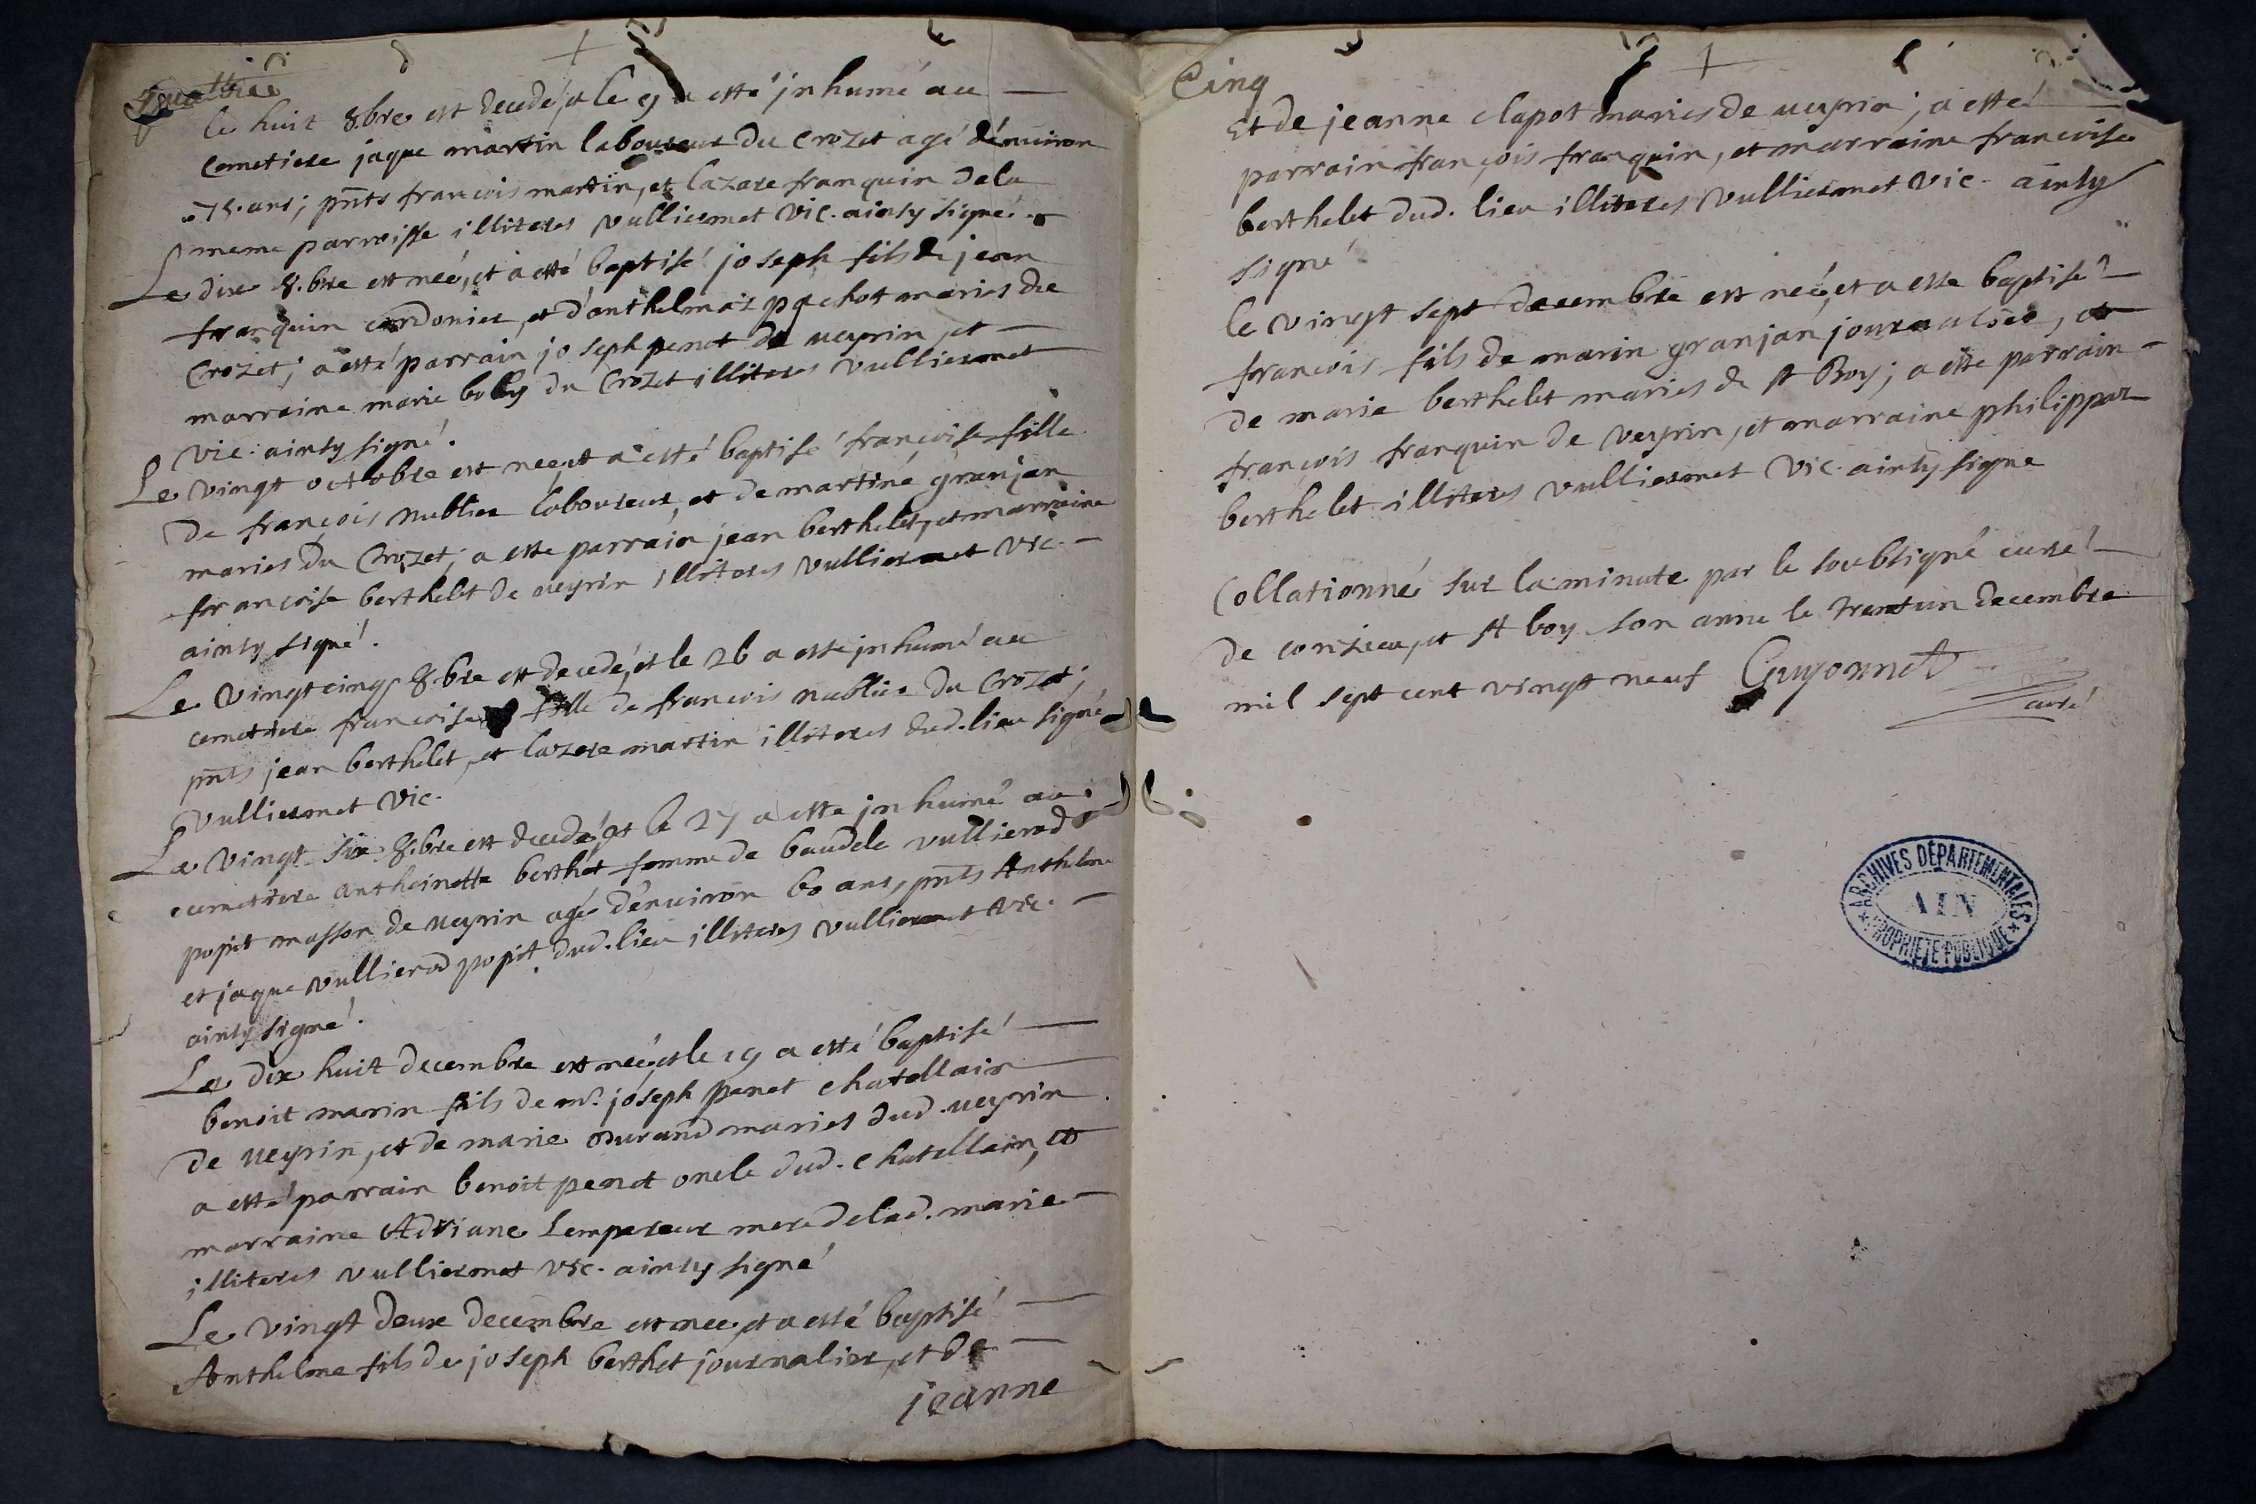 quattre
le huit 8.bre est decedé, et le 9 a esté jnhumé au
cemetiere jaque martin laboureur du Crozet agé d'enuiron
75. ans; pnts francois martin, et lazare franquin dela
meme parroisse illiteres vulliermet vic. ainsy signé.
Le dix 8.bre est neé, et a esté baptisé joseph fils de jean
franquin cordonier, et d'anthelmaz pochot mariés du
Crozet; a esté parrain joseph penet de ueyrin, et
marraine marie bolly du Crozet illiteres vulliermet
vic. ainsy signé.
Le vingt octobre est neé, et a esté baptisé françoise fille
de françois nublier laboureur, et de martine granjan
mariés du Crozet; a esté parrain jean berthelet, et marraine
françoise berthelet de ueyrin illiteres vulliermet vic.
ainsy signé.
Le vingt cinq 8.bre est decedé, et le 26 a esté jnhumé au
cemetiere francoise fille de francois nublier du Crozet;
pnts jean berthelet, et lazare martin illiteres dud. lieu signé
vulliermet vic.
Le vingt six 8.bre est decedé, et le 27 a esté jnhumé au
cemetiere antheinette berthet femme de baudele vullierod
popit masson de ueyrin agé d'enuiron 60 ans, pnts Anthelme
et jaque vullierod popit dud. lieu illiteres vulliermet vic.
ainsy signé.
Le dix huit decembre est neé, et le 19 a esté baptisé
benoit marin fils de mr. joseph penet chatellain
de ueyrin, et de marie Durand mariés dud. ueyrin
a esté parrain benoit penet oncle dud. chatellain, et
marraine Adriane Lempereur mere delad. marie
illiteres vulliermet vic. ainsy signé
Le vingt deux decembre est neé, et a esté baptisé
Anthelme fils de joseph berthet journalier, et de
jeanne
Cinq
Et de jeanne clapot mariés de ueyrin; a esté
parrain françois franquin, et marraine francoise
berthelet dud. lieu illiteres vulliermet vic. ainsy
signé
le vingt sept decembre est neé, et a esté baptisé
francois fils de marin granjan journalier, et
de marie berthelet mariés de st Boy; a esté parrain
françois franquin de veyrin, et marraine philippaz
berthelet illiteres vulliermet vic. ainsy signé
Collationné sur la minute par le soubsigné curé
de conzieu, et st boy son anne le trent un decembre
mil sept cent vingt neuf Guyonnet
curé
ARCHIVES DÉPARTEMENTALES
AIN
PROPRIÉTÉ PUBLIQUE